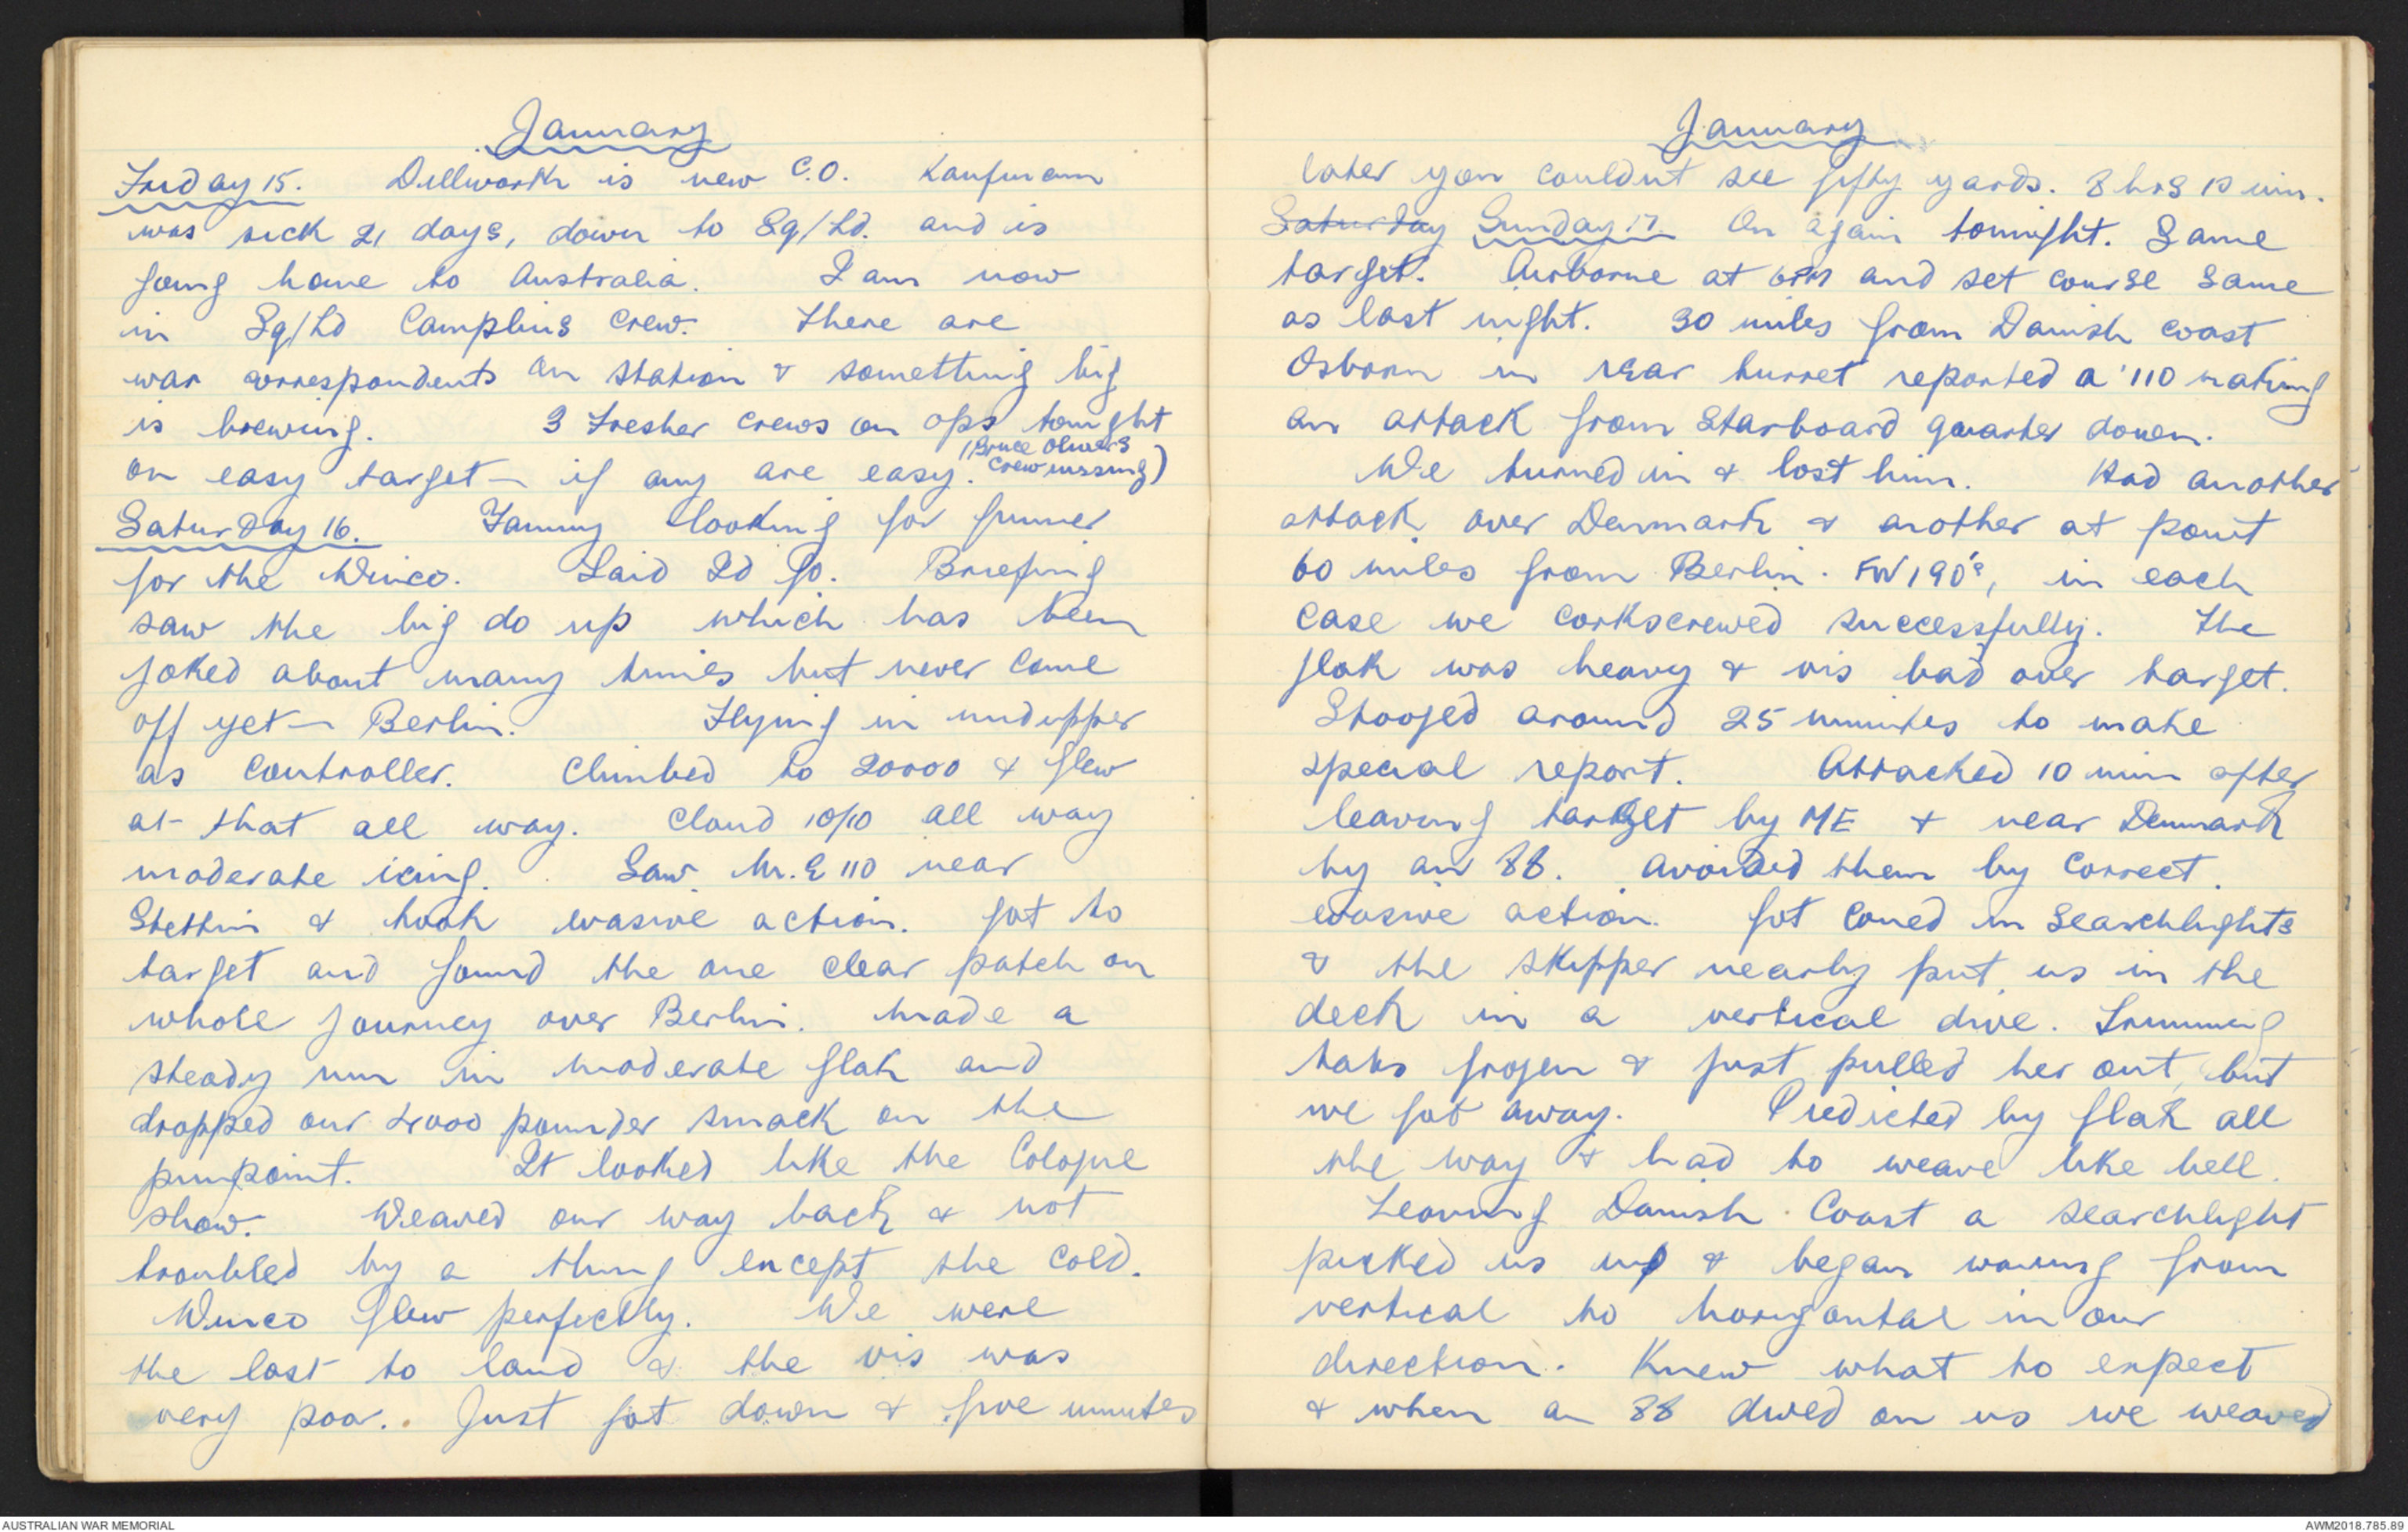 January
Friday 15. Dillworth is new C.O. Kaufmann
was sick 21 days, down to Sq/Ld. and is
going home to Australia. I am now
in Sq/Ld Camplins crew. There are
war correspondents on station & something big
is brewing. 3 Fresher crews on ops tonight
on easy target – if any are easy. (Bruce Olivers
crew missing)
Saturday 16. Fanny looking for gunner
for the Winco. Said I'd go. Briefing
saw the big do up which has been
joked about many times but never came
off yet – Berlin. Flying in mid upper
as controller. Climbed to 20000 & flew
at that all way. Cloud 10/10 all way
moderate icing. Saw M.E 110 near
Stettin & took evasive action. Got to
target and found the one clear patch on
whole journey over Berlin. Made a
steady run in moderate flak and
dropped our 4000 pounder smack on the
pinpoint. It looked like the Cologne
show. Weaved our way back & not
troubled by a thing except the cold.
Winco flew perfectly. We were
the last to land & the vis was
very poor. Just got down & five minutes
January
later you couldnt see fifty yards. 8 hrs 10 min.
Saturday Sunday 17. On again tonight. Same
target. Airborne at 6PM and set course same
as last night. 30 miles from Danish coast
Osborn in rear turret reported a '110 making
an attack from starboard quarter down.
We turned in & lost him. Had another
attack over Denmark & another at point
60 miles from Berlin. FW190's, in each
case we corkscrewed successfully. The
flak was heavy & vis bad over target.
Stooged around 25 minutes to make
special report. Attacked 10 min after
leaving target by ME & near Denmark
by an 88. Avoided them by correct
evasive action. Got coned in searchlights
& the skipper nearly put us in the
deck in a vertical dive. Trimming
tabs frozen & just pulled her out, but
we got away. Predicted by flak all
the way & had to weave like hell.
Leaving Danish Coast a searchlight
picked us up & began waving from
vertical to horizontal in our
direction. Knew what to expect
& when an 88 dived on us we weaved
AUSTRALIAN WAR MEMORIAL
AWM2018.785.89